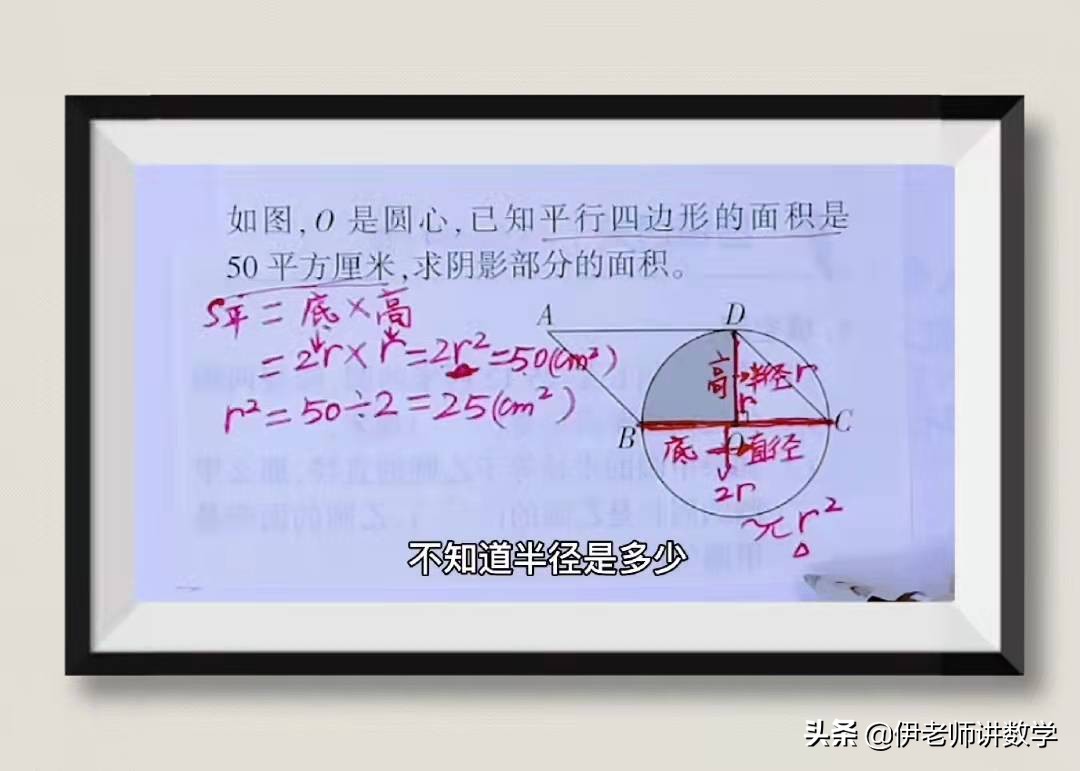 如图,O 是圆心,已知平行四边形的面积是
50 平方厘米,求阴影部分的面积。
S平 = 底 × 高
= 2r × r = 2r² = 50(cm²)
r² = 50 ÷ 2 = 25(cm²)
A
D
高
半径 r
r
B
O
C
底
直径
2r
πr²
不知道半径是多少
头条 @伊老师讲数学